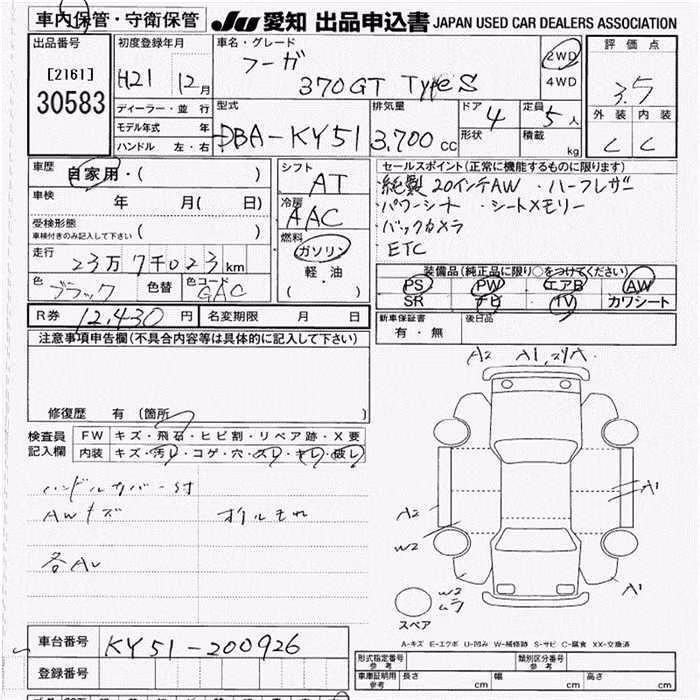 車内保管・守衛保管
JU 愛知 出品申込書 JAPAN USED CAR DEALERS ASSOCIATION
出品番号
[2161]
30583
初度登録年月
H21 12月
車名・グレード
フーガ
370GT TypeS
2WD
4WD
評価点
3.5
外装 内装
C C
ディーラー・並行
モデル年式 年
ハンドル 左・右
型式
DBA-KY51
排気量
3,700 cc
ドア 4
形状
定員 5人
積載 kg
車歴
自家用・( )
車検 年 月( 日)
受検形態
車検付きのみ記入して下さい ( )
走行
23万7千023km
色 ブラック 色替 色コード GAC
シフト
AT
冷房
AAC
燃料
ガソリン
軽・油
( )
セールスポイント(正常に機能するものに限ります)
・純製20インチAW ・ハーフレザー
・パワーシート ・シートメモリー
・バックカメラ
・ETC
装備品(純正品に限り○をつけてください)
PS PW エアB AW
SR ナビ TV カワシート
R券 12,430円 名変期限 月 日
新車保証書 有・無
後日品
注意事項申告欄(不具合内容等は具体的に記入して下さい)
修復歴 有(箇所 )
検査員記入欄
FW キズ・飛石・ヒビ割・リペア跡・X要
内装 キズ・汚レ・コゲ・穴・スレ・キレ・破レ
ハンドルカバー付
AWキズ オイルもれ
A2 A1
A1
A2
W2
A1
W2
ムラ
スペア
A-キズ E-エクボ U-凹み W-補修跡 S-サビ C-腐食 XX-交換済
車台番号 KY51-200926
登録番号
形式指定番号 参考
類別区分番号 参考
車庫証明用 参考 長さ cm 幅 cm 高さ cm